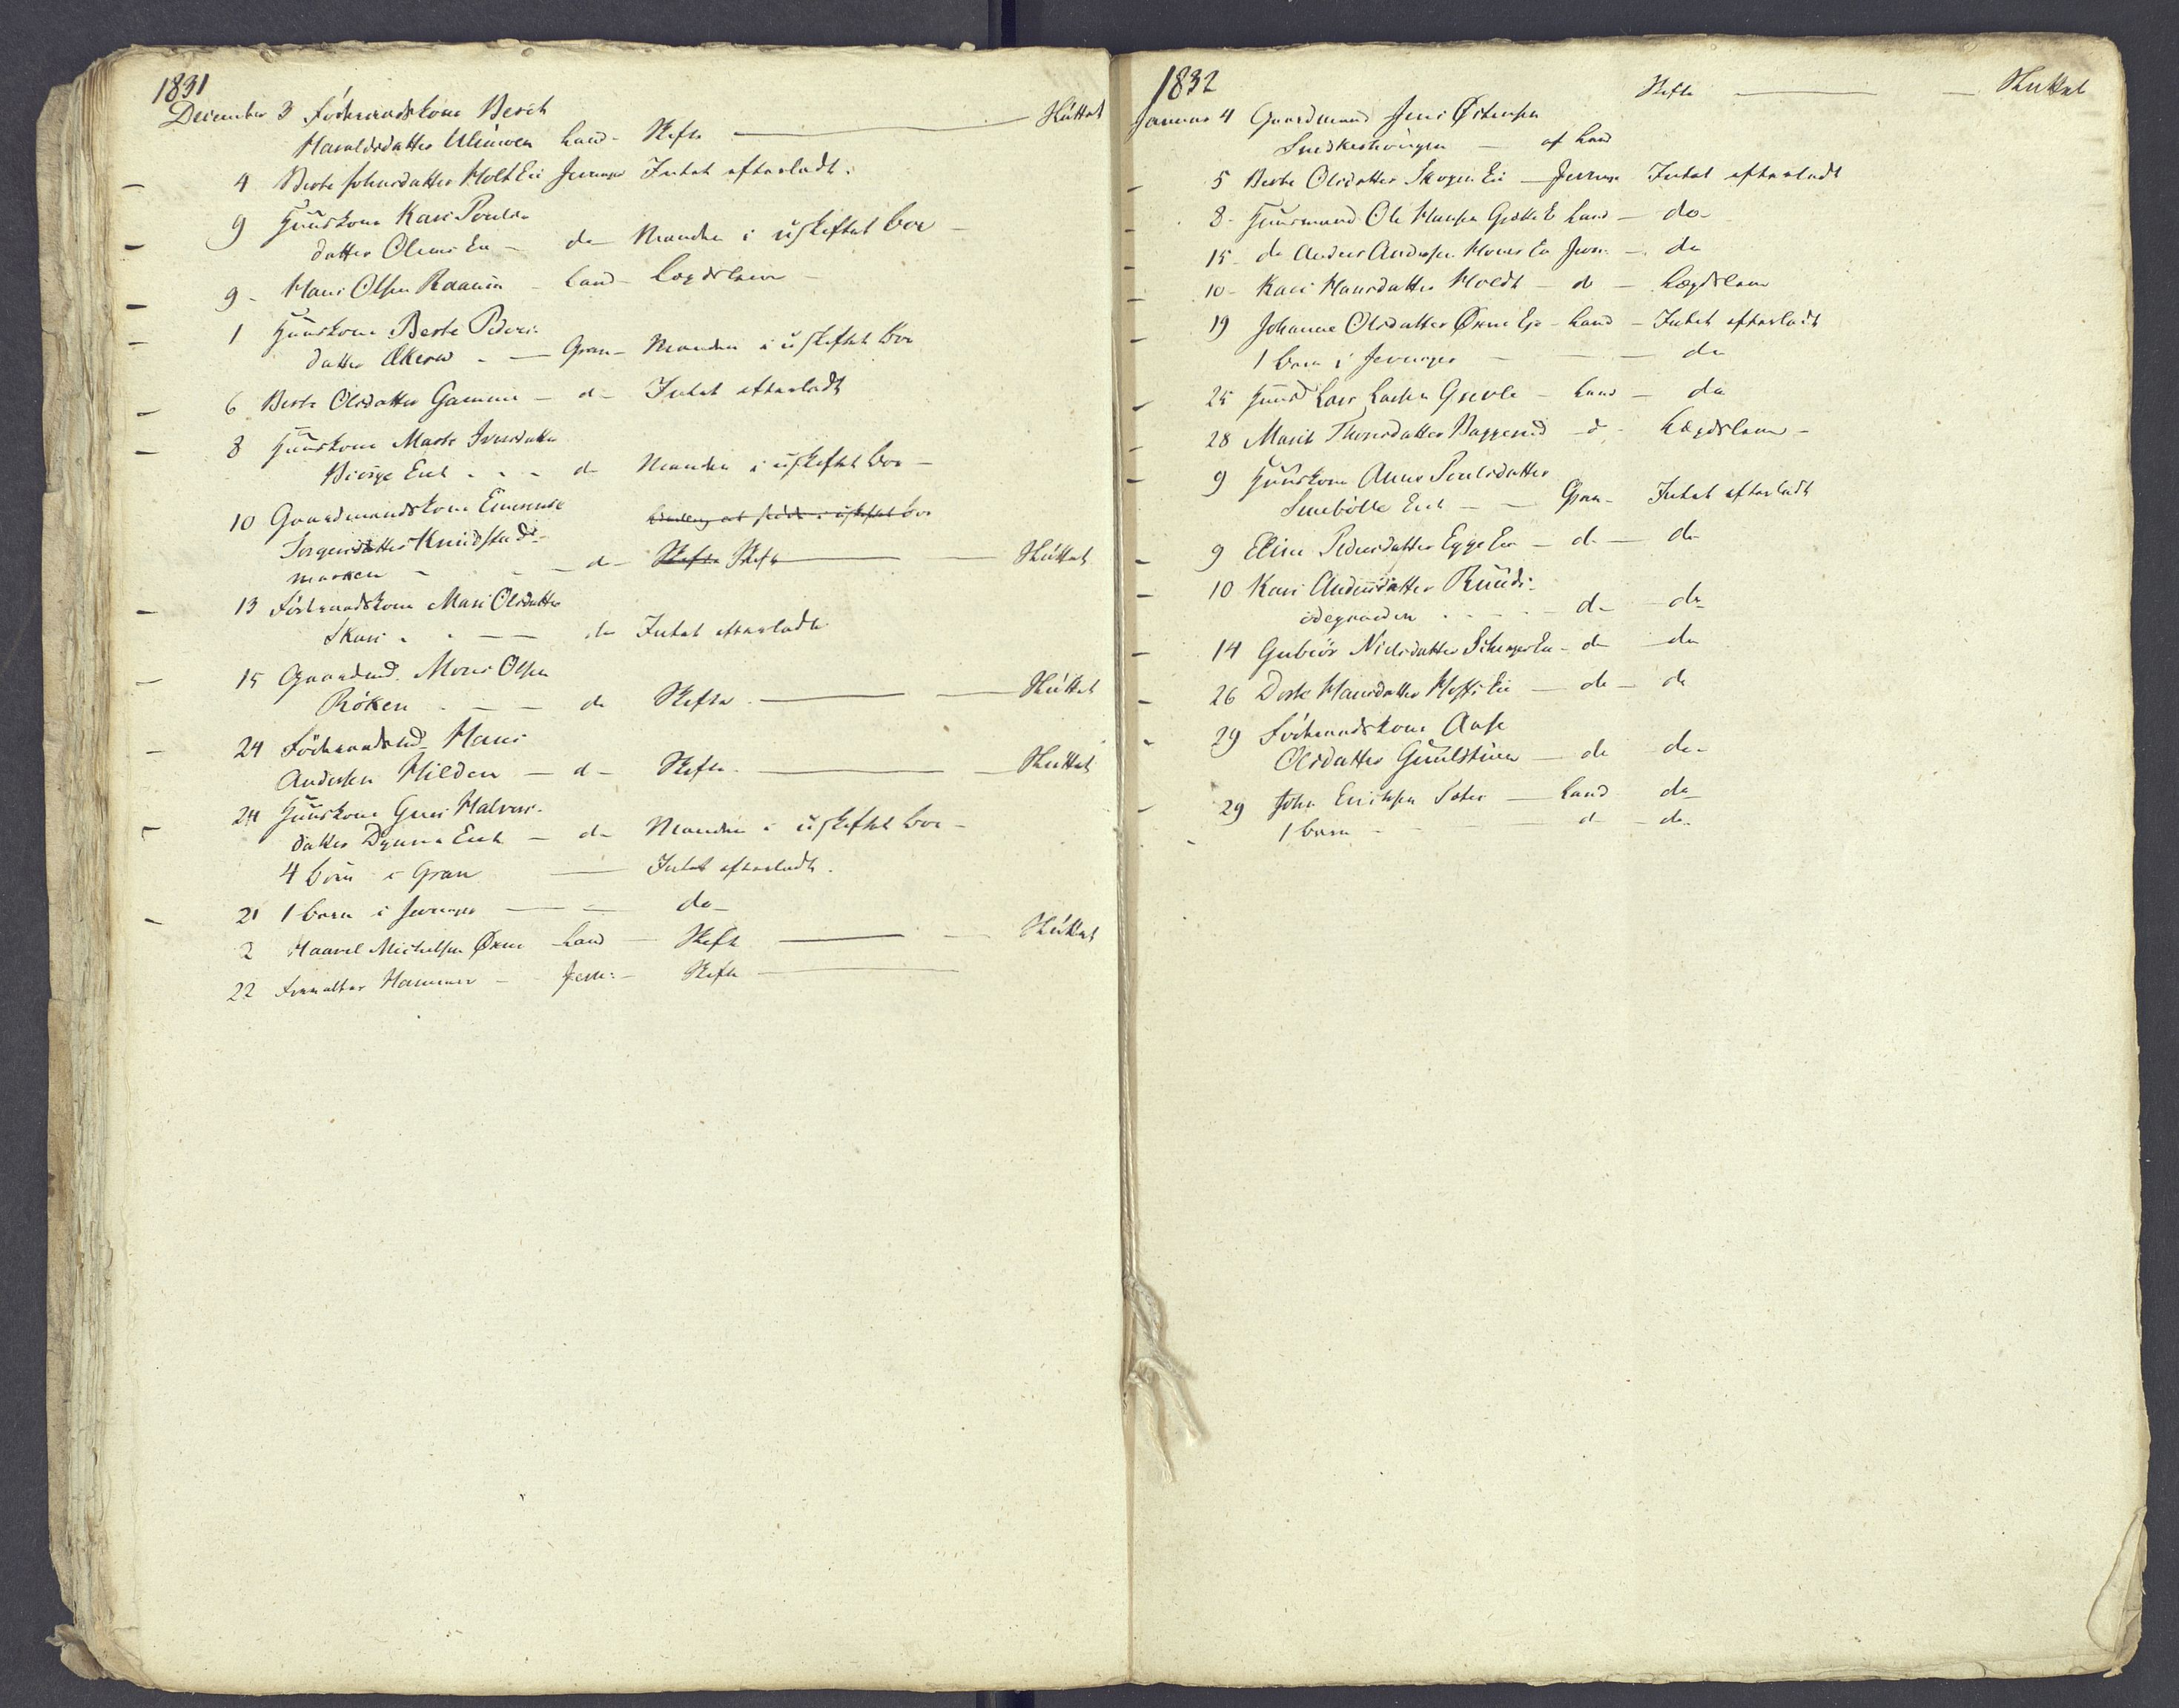 1831
December 3 Föderaadskone Berit
Haraldsdatter Ulinoen Land - Skifte — Sluttet
4 Berte Johnsdatter Holt Eie Jevnager Intet efterladt.
9 Huuskone Kari Pouls-
datter Olims Eie - do Manden i uskiftet Boe -
9 - Hans Olsen Raaum - Land - Lægdslem -
1 Huuskone Berte Peders-
datter Økern - — Gran - Manden i uskiftet Boe
6 Berte Olsdatter Gamme - do - Intet efterladt
8 Huuskone Marte Iversdatter
Biørge Eiet - - - do Manden i uskiftet Boe -
10 Gaardmandskone
Jørgensdatter Knudstads-
marken - - - do - Skifte Skifte — Sluttet
13 Föderaadskone Mari Olsdatter
Skari - - — do Intet efterladt
15 Gaardmd. Mons Olsen
Röken - — do Skifte — Sluttet
24 Föderaadsmd. Hans
Andersen Hilden — do - Skifte — Sluttet
24 Huuskone Guri Halvors-
datter Dynna Eiet - do - Manden i uskiftet Boe -
4 börn i Gran — Intet efterladt.
21 1 barn i Jevnager — do -
2 Haavel Michelsen Ørne Land — Skifte — Sluttet
22 Forvalter Hammer - Jevn: - Skifte —
1832 Skifte — Sluttet
Januar 4 Gaardmand Jens Østensen
— af Land
5 Berte Olsdatter Skogen Eie — Jevnager Intet efterladt
8 - Huusmand Ole Hansen Land — do -
15 - do Anders Andersen Mons Eie Jevn. - do
10 - Kari Hansdatter Holdt - do - Lægdslem
19 Johanne Olsdatter Ørne Eje - Land - Intet efterladt
1 Barn i Jevnager — do
25 Huusmd Lars Larsen - Land — do
28 Marit Thorsdatter Baggerud - do - Lægdslem -
9 Huuskone Anne Poulsdatter
Smebölle Eiet - — Gran - Intet efterladt
9 Eline Pedersdatter Egge Eie — do — do
10 Kari Andersdatter Ruuds-
ödegaarden - - - - do — do
14 Gubiör Nielsdatter Eie - do do
26 Dorte Hansdatter Hoffs Eie — do - do
29 Föderaadskone Aase
Olsdatter — do do -
29 John Erichsen — Land do
1 Barn — do - do -